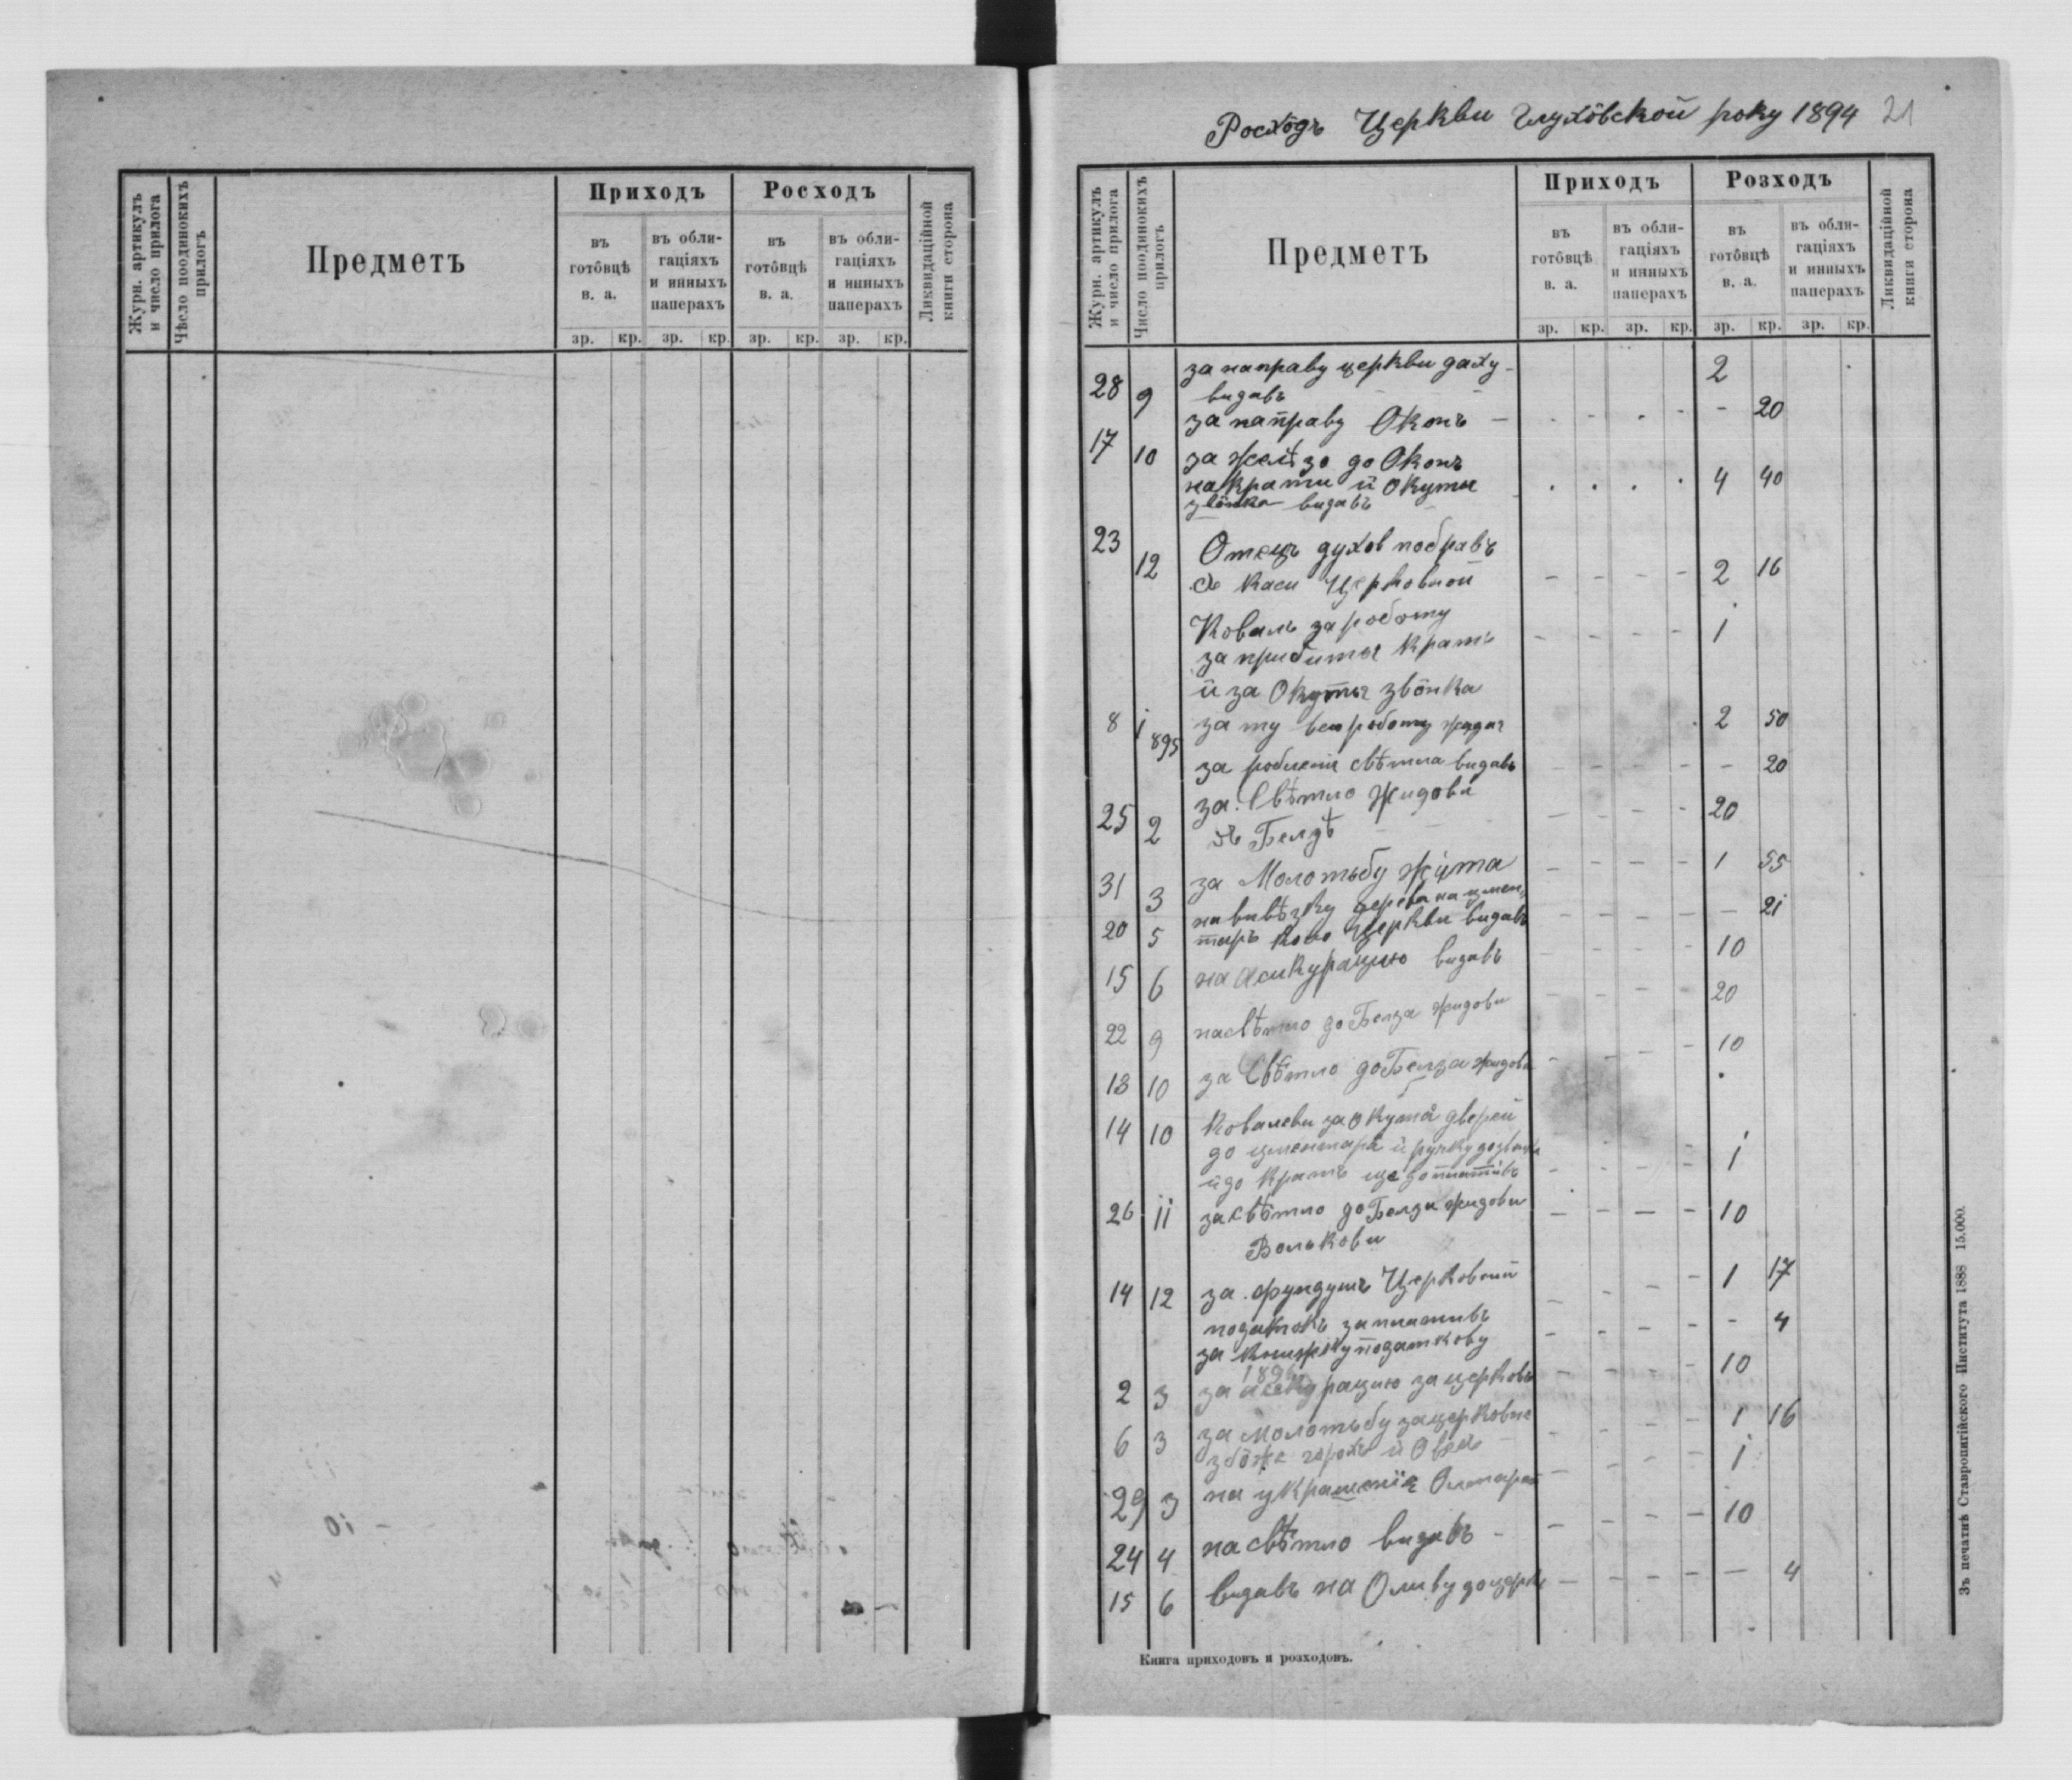 Журн. артикулъ и число прилога
Чѣсло поодинокихъ прилогъ
Предметъ
Приходъ
Росходъ
въ готôвцѣ в. а.
въ облигаціяхъ и инныхъ паперахъ
въ готôвцѣ в. а.
въ облигаціяхъ и инныхъ паперахъ
зр. кр. зр. кр. зр. кр. зр. кр.
Ликвидаційной книги сторона
Росхôдъ Церкви Глухôвской року 1894 21
Журн. артикулъ и число прилога
Число поодинокихъ прилогъ
Предметъ
Приходъ
Розходъ
въ готôвцѣ в. а.
въ облигаціяхъ и инныхъ паперахъ
въ готôвцѣ в. а.
въ облигаціяхъ и инныхъ паперахъ
зр. кр. зр. кр. зр. кр. зр. кр.
Ликвидаційной книги сторона
28 9 за направу церкви даху - 2
видавъ
за направу Оконъ - - 20
17 10 за желѣзо до Оконъ
на крати й Окутя 4 40
звôнка видавъ
23 12 Отецъ духов побравъ
съ каси Церковной - - - - 2 16
Коваль за роботу - - - - 1
за прибитя кратъ
й за Окутя звôнка
8 1 895 за ту всю роботу 2 50
за робленя свѣтла видавъ - 20
25 2 за Свѣтло Жидови 20
въ Белзѣ
31 3 за Молотьбу жита 1 55
на вивѣзку дерева на цмен- - 21
20 5 таръ коло Церкви видавъ
15 6 на асикурацию видавъ 10
22 9 на свѣтло до Белза жидови 20
13 10 за Свѣтло до Белза жидови 10
14 10 Ковалеви за Окутя дверей
до цментара й ручку до
й до кратъ ще доплативъ 1
26 11 за свѣтло до Белза жидови - - - - 10
Волькови
14 12 за фундушъ Церковний 1 17
податокъ заплативъ
за книжку податкову - 4
189
2 3 за асекурацию за церковь 10
6 3 за молотьбу за церковне 1 16
збôже горохъ й Овесъ
29 3 на украшенїе Олтара 1
24 4 на свѣтло видавъ - 10
15 6 видавъ на Оливу до церкв - - - - - 4
Книга приходовъ и розходовъ.
Зъ печатнѣ Ставропигійского Института 1888 15.000.